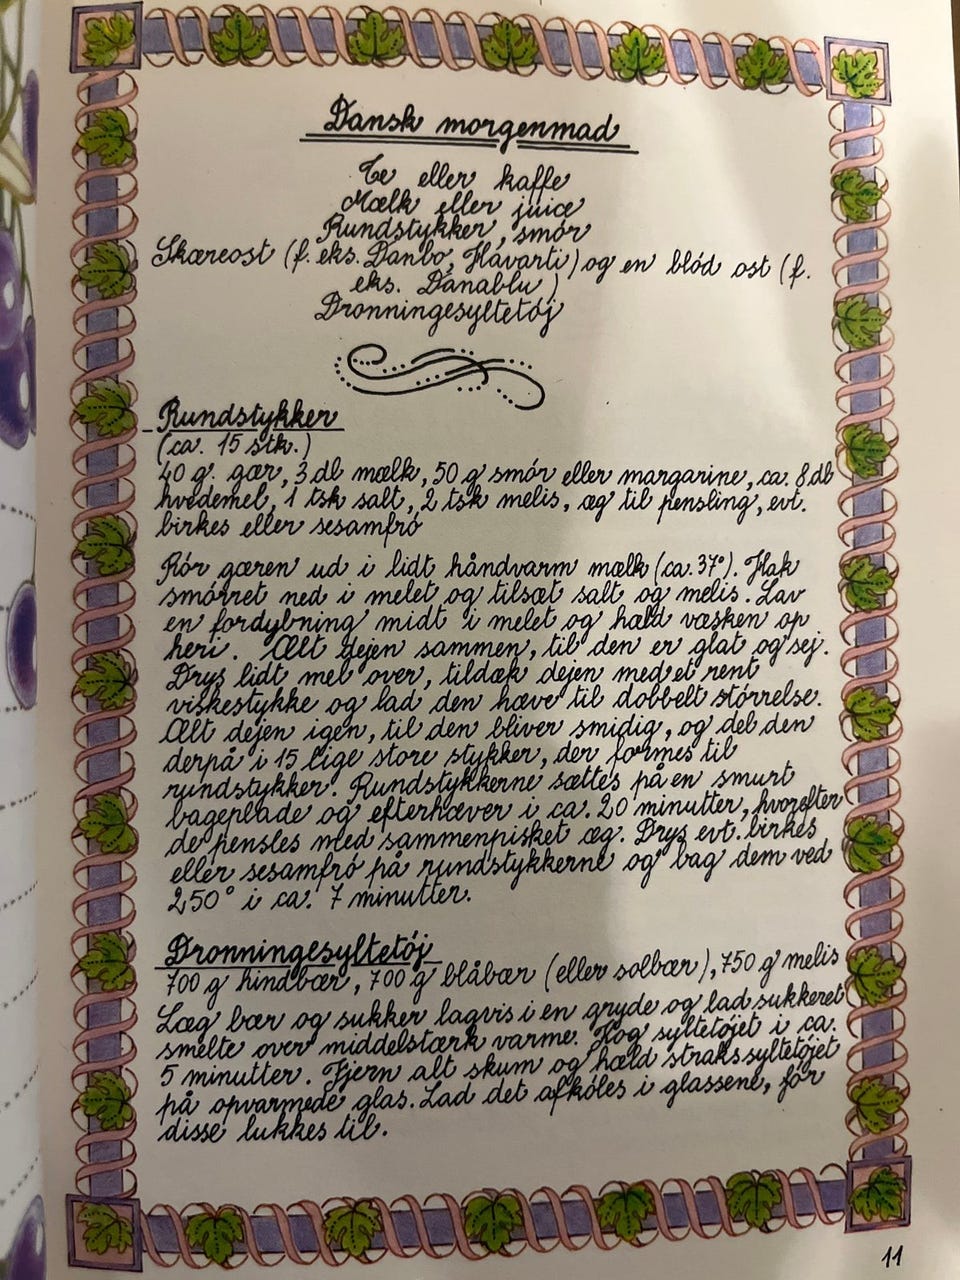 Dansk morgenmad
Te eller kaffe
Mælk eller juice
Rundstykker, smör
Skæreost (f. eks. Danbo, Havarti) og en blöd ost (f.
eks. Danablu)
Dronningesyltetöj
Rundstykker
(ca. 15 stk.)
40 g. gær, 3 dl mælk, 50 g smör eller margarine, ca. 8 dl
hvedemel, 1 tsk salt, 2 tsk melis, æg til pensling, evt.
birkes eller sesamfrö
Rör gæren ud i lidt håndvarm mælk (ca. 37°). Hak
smörret ned i melet og tilsæt salt og melis. Lav
en fordybning midt i melet og hæld væsken op
heri. Ælt dejen sammen, til den er glat og sej.
Drys lidt mel over, tildæk dejen med et rent
viskestykke og lad den hæve til dobbelt störrelse.
Ælt dejen igen, til den bliver smidig, og del den
derpå i 15 lige store stykker, der formes til
rundstykker. Rundstykkerne sættes på en smurt
bageplade og efterhæver i ca. 20 minutter, hvorefter
de pensles med sammenpisket æg. Drys evt. birkes
eller sesamfrö på rundstykkerne og bag dem ved
250° i ca. 7 minutter.
Dronningesyltetöj
700 g hindbær, 700 g blåbær (eller solbær), 750 g melis
Læg bær og sukker lagvis i en gryde og lad sukkeret
smelte over middelstærk varme. Kog syltetöjet i ca.
5 minutter. Fjern alt skum og hæld straks syltetöjet
på opvarmede glas. Lad det afköles i glassene, för
disse lukkes til.
11